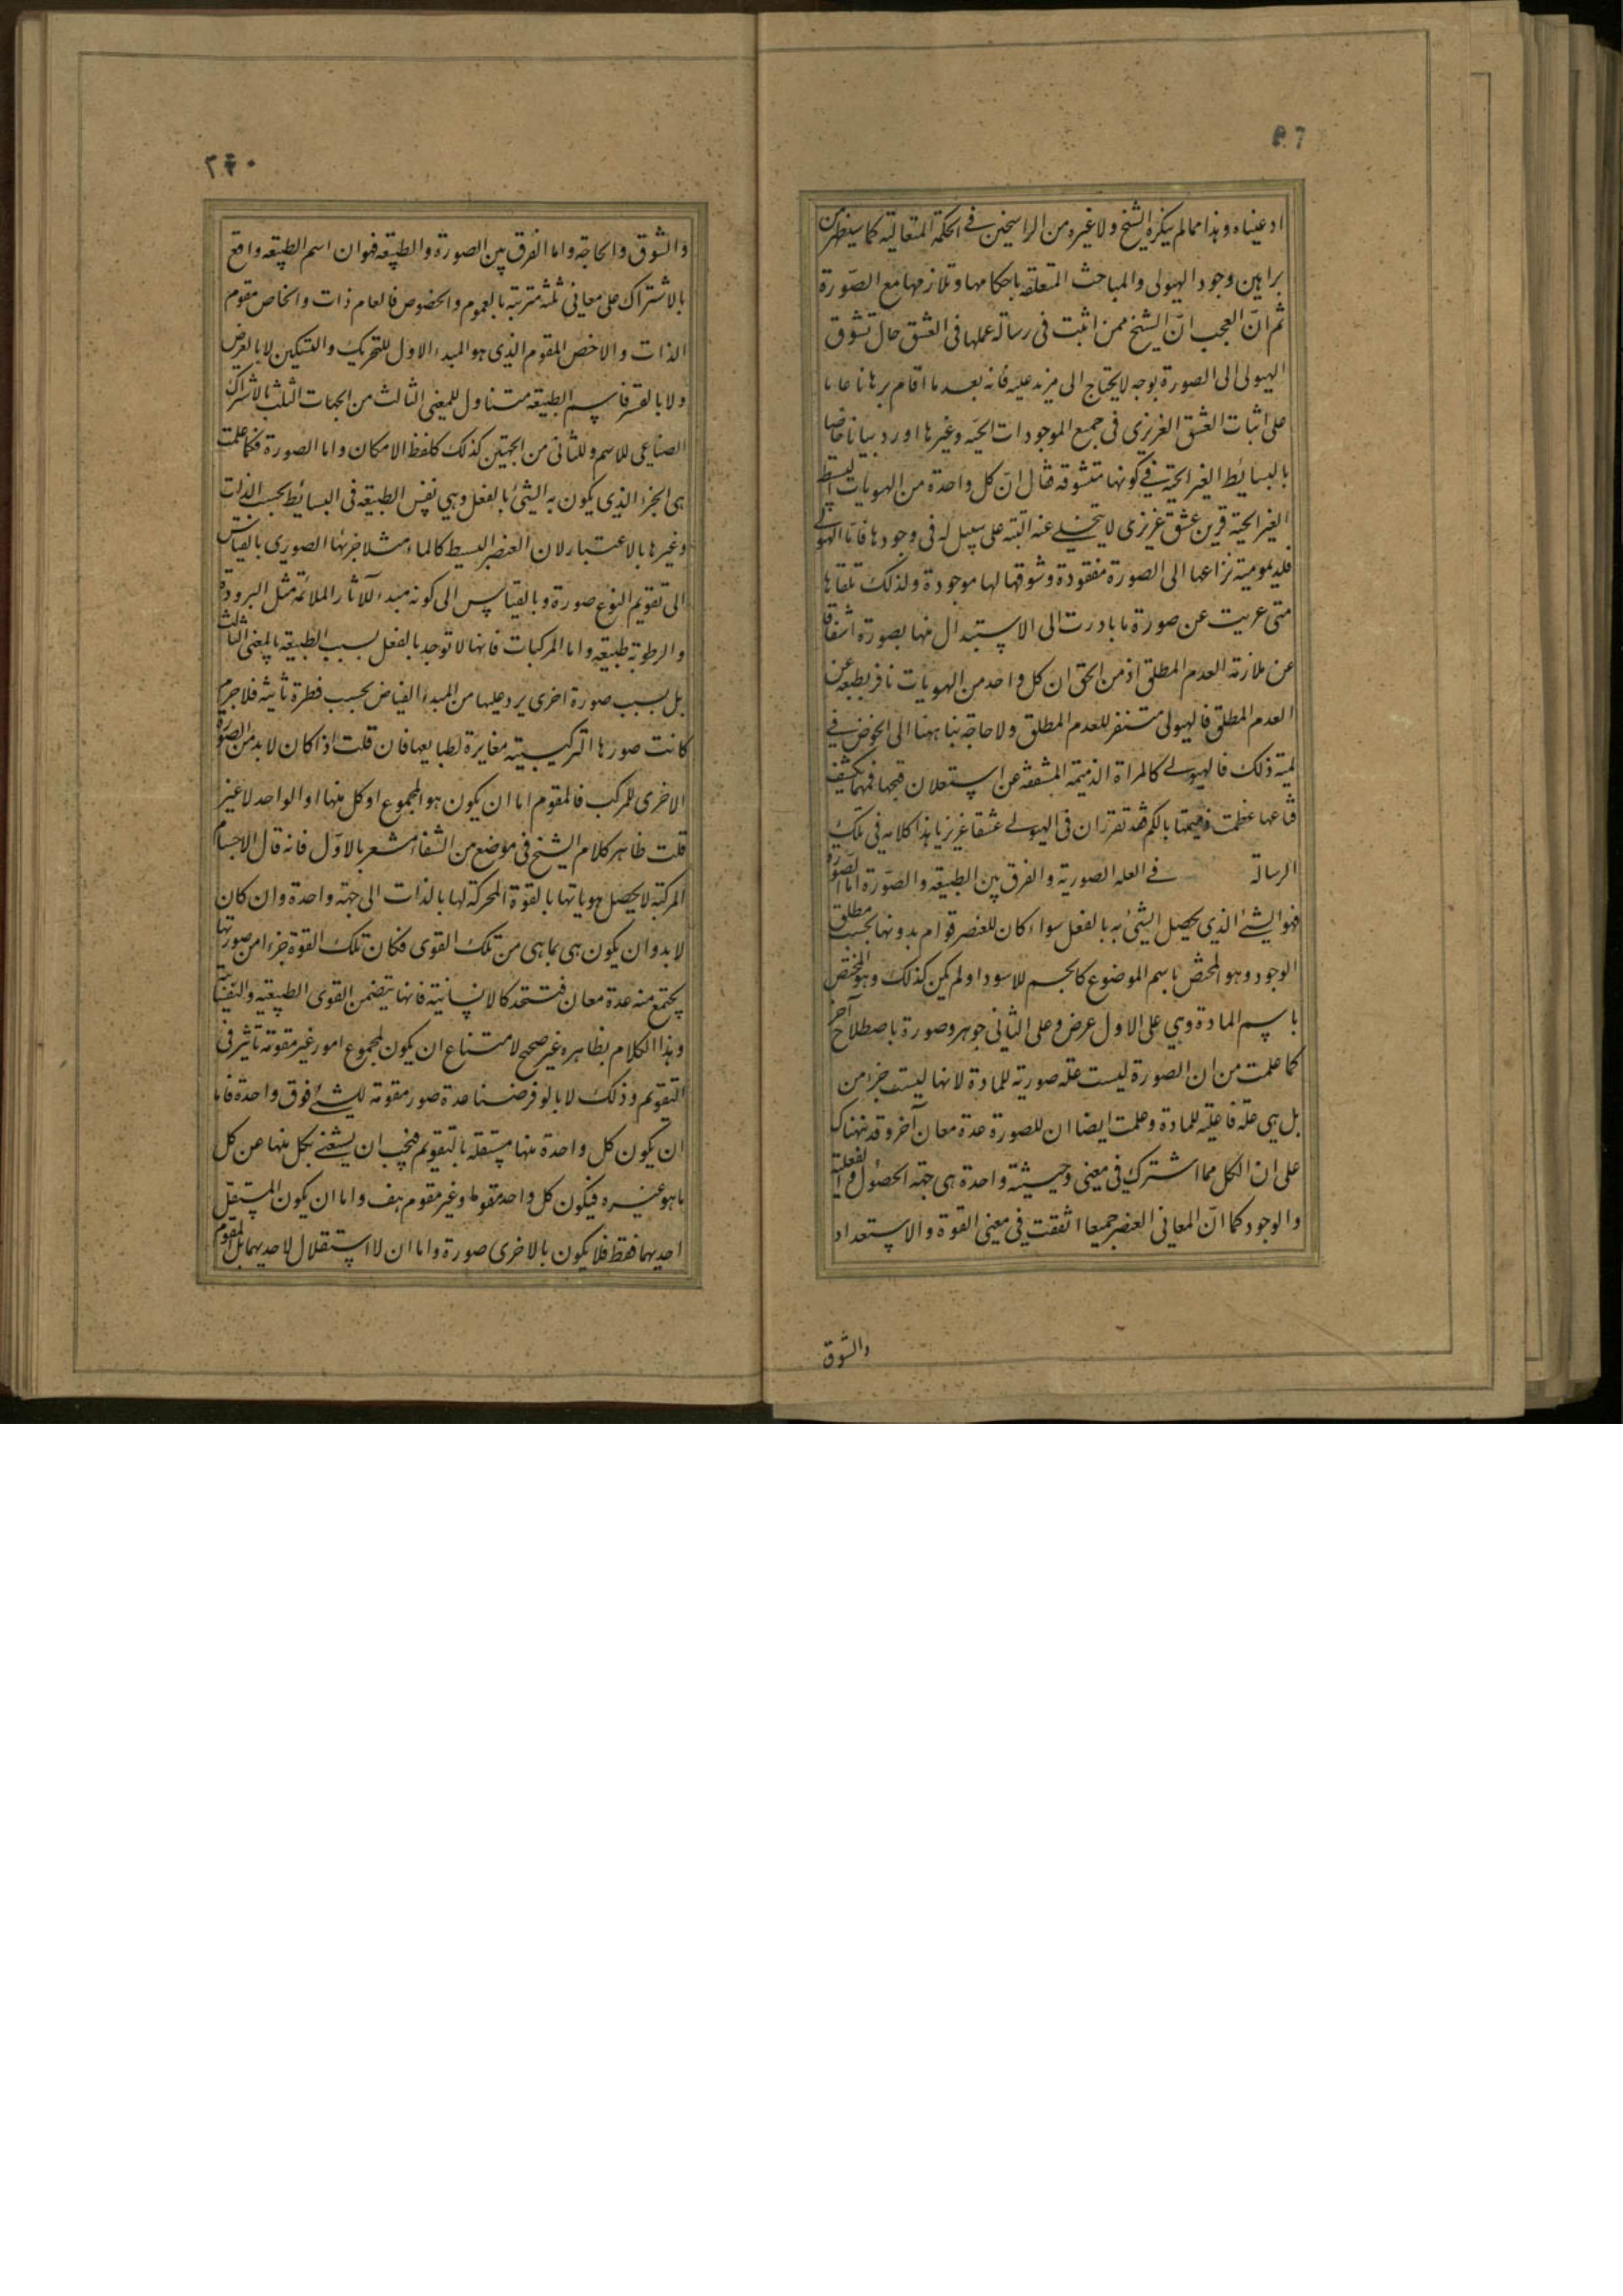 ادعيناه وهذا مما لم ينكره الشيخ ولا غيره من الراسخين في الحكمة المتعالية كما سيظهر من
براهين وجود الهيولى والمباحث المتعلقه باحكامها وتلازمها مع الصّورة
ثم انّ العجب انّ الشيخ ممن اثبت في رسالة عملها في العشق حال تشوق
الهيولى الى الصورة بوجه لا يحتاج الى مزيد عليه فانه بعد ما اقام برهانا عاما
على اثبات العشق الغريزى فى جميع الموجودات الحيّه وغيرها اورد بيانا خاصا
بالبسائط الغير الحيّة في كونها متشوقة فقال انّ كل واحدة من الهويات البسيطة
الغير الحية قرين عشق غريزى لا يتخلى عنه البتة على سبيل له فى وجودها فاما الهيولى
فلديمومية نزاعها الى الصورة مفقودة وشوقها لها موجودة ولذلك تلقاها
متى عريت عن صورة ما بادرت الى الاستبدال منها بصورة اشفاقا
عن ملازمة العدم المطلق اذ من الحق ان كل واحد من الهويات نافر بطبعه عن
العدم المطلق فالهيولى متنفر للعدم المطلق ولا حاجة بنا ههنا الى الخوض في
لمية ذلك فالهيولى كالمراة الذميمة المشفقة عن استعلان قبحها فمهما يكشف
قناعها غطت ذميمتها بالكم فقد تقرر ان فى الهيولى عشقا غريزيا هذا كلامه فى تلك
الرسالة في العله الصورية والفرق بين الطبيعة والصّورة اما الصّورة
فهو الشئ الذي يحصل الشئ به بالفعل سواء كان للعنصر قوام بدونها بحسب مطلق
الوجود وهو المختص باسم الموضوع كالجسم للاسود او لم يكن كذلك وهو المختص
باسم المادة وهي على الاول عرض وعلى الثانى جوهر وصورة باصطلاح آخر
كما علمت من ان الصورة ليست علة صورية للمادة لانها ليست جزء من
بل هي علة فاعلية للمادة وعلمت ايضا ان للصورة عدة معان آخر وقد نبهناك
على ان الكل مما اشترك فى معنى وحيثية واحدة هى جهة الحصول والفعلية
والوجود كما انّ المعانى العنصر جميعا اتفقت فى معنى القوة والاستعداد
والشوق
٢٤٠
والشوق والحاجة واما الفرق بين الصورة والطبيعه فهو ان اسم الطبيعه واقع
بالاشتراك على معانى ثلثة مترتبة بالعموم والخصوص فالعام ذات والخاص مقوم
الذات والاخص المقوم الذي هو المبدء الاول للتحريك والتسكين لا بالعرض
ولا بالقسر فاسم الطبيعه متناول للمعنى الثالث من الجهات الثلث بالاشتراك
الصناعى للاسم وللثانى من الجهتين كذلك كلفظ الامكان واما الصورة فكما علمت
هى الجزء الذي يكون به الشئ بالفعل وهي نفس الطبيعة فى البسائط بحسب الذات
وغيرها بالاعتبار لان العنصر البسيط كالماء مثلا جزئها الصورى بالقياس
الى تقويم النوع صورة وبالقياس الى كونه مبدء للآثار الملائمة مثل البرودة
والرطوبة طبيعة واما المركبات فانها لا توجد بالفعل بسبب الطبيعه بالمعنى الثالث
بل بسبب صورة اخرى يرد عليها من المبدء الفياض بحسب فطرة ثانية فلا جرم
كانت صورها التركيبية مغايرة لطبايعها فان قلت اذا كان لابد من الصّورة
الاخرى للمركب فالمقوم اما ان يكون هو المجموع او كل منها او الواحد لا غير
قلت ظاهر كلام الشيخ فى موضع من الشفاء مشعر بالاوّل فانه قال الاجسام
المركبة لا يحصل هوياتها بالقوة المحركة لها بالذات الى جهة واحدة وان كان
لابد وان يكون هى بما هى من تلك القوى فكان تلك القوة جزء من صورتها
يجتمع منه عدة معان فتتحد كالانسانية فانها يتضمن القوى الطبيعية والنفسانية
وهذا الكلام بظاهره غير صحيح لامتناع ان يكون لمجموع امور غير مقومة تاثير فى
التقويم وذلك لانا لو فرضنا عدة صور مقومة للشئ فوق واحدة فاما
ان يكون كل واحدة منها مستقلة بالتقويم فيجب ان يستغنى بكل منها عن كل
ما هو غيره فيكون كل واحد مقوما وغير مقوم هف واما ان يكون المستقل
احديهما فقط فلا يكون بالاخرى صورة واما ان لا استقلال لاحديهما بل المقوم